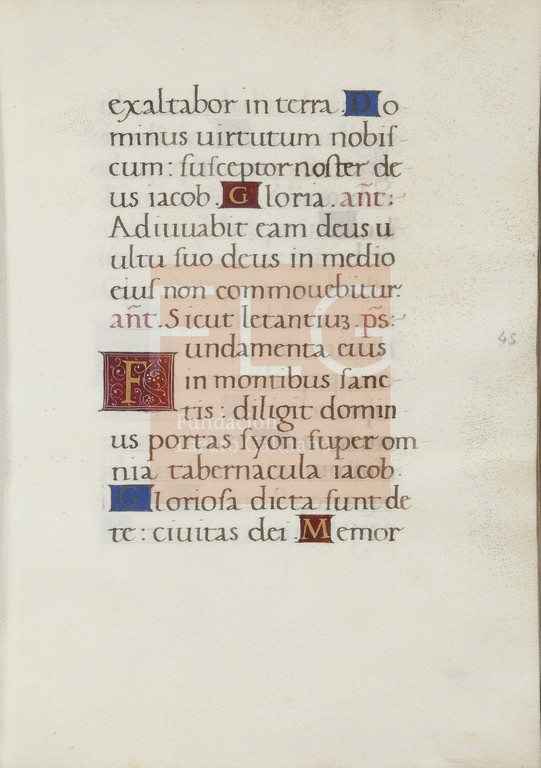 exaltabor in terra. Do
minus uirtutum nobiſ
cum: ſuſceptor noſter de
us iacob. Gloria. añt:
Adiuuabit eam deus u
ultu ſuo deus in medio
eiuſ non commouebitur.
añt. Sicut letantiuꝫ. ps:
Fundamenta eius
in montibus ſanc
tis: diligit domin
us portas ſyon ſuper om
nia tabernacula iacob.
Glorioſa dicta ſunt de
te: ciuitas dei. Memor
45
FLG
Fundación